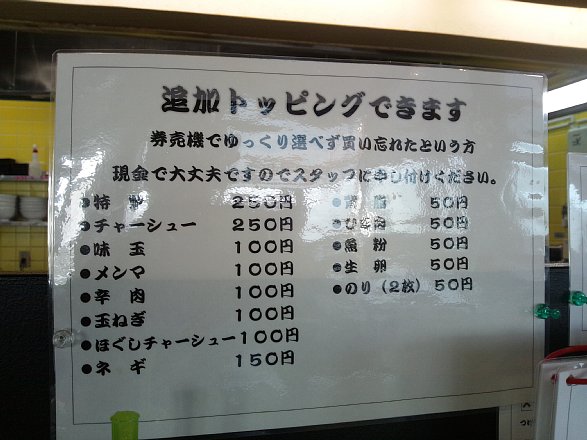 追加トッピングできます
券売機でゆっくり選べず買い忘れたという方
現金で大丈夫ですのでスタッフに申し付けください。
●特 製 250円
●チャーシュー 250円
●味 玉 100円
●メンマ 100円
●辛 肉 100円
●玉ねぎ 100円
●ほぐしチャーシュー 100円
●ネ ギ 150円
脂 50円
●ひき肉 50円
●魚 粉 50円
●生 卵 50円
●のり（2枚）50円